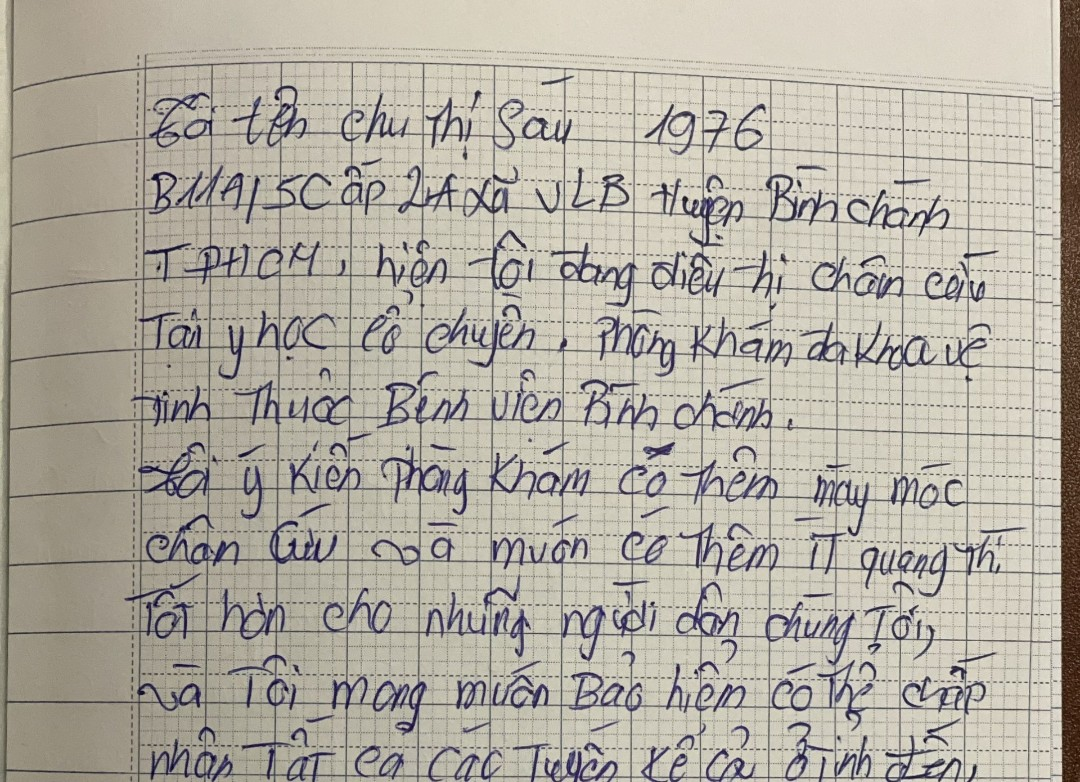 Tôi tên chu Thị Sáu 1976
B11A/5C ấp 2A xã VLB Huyện Bình chánh
TPHCM, hiện tôi đang điều thị châm cứu
Tại y học cổ chuyền. Phòng Khám đa Khoa vệ
tinh Thuộc Bệnh viện Bình chánh.
tôi ý Kiến Phòng Khám có Thêm máy móc
châm Cứu và muốn có Thêm iT quang Thì
Tốt hơn cho những người dân chúng Tôi,
và Tôi mong muốn Bảo hiểm có Thể chấp
nhận Tất cả các Tuyến kể cả ở Tỉnh đến,